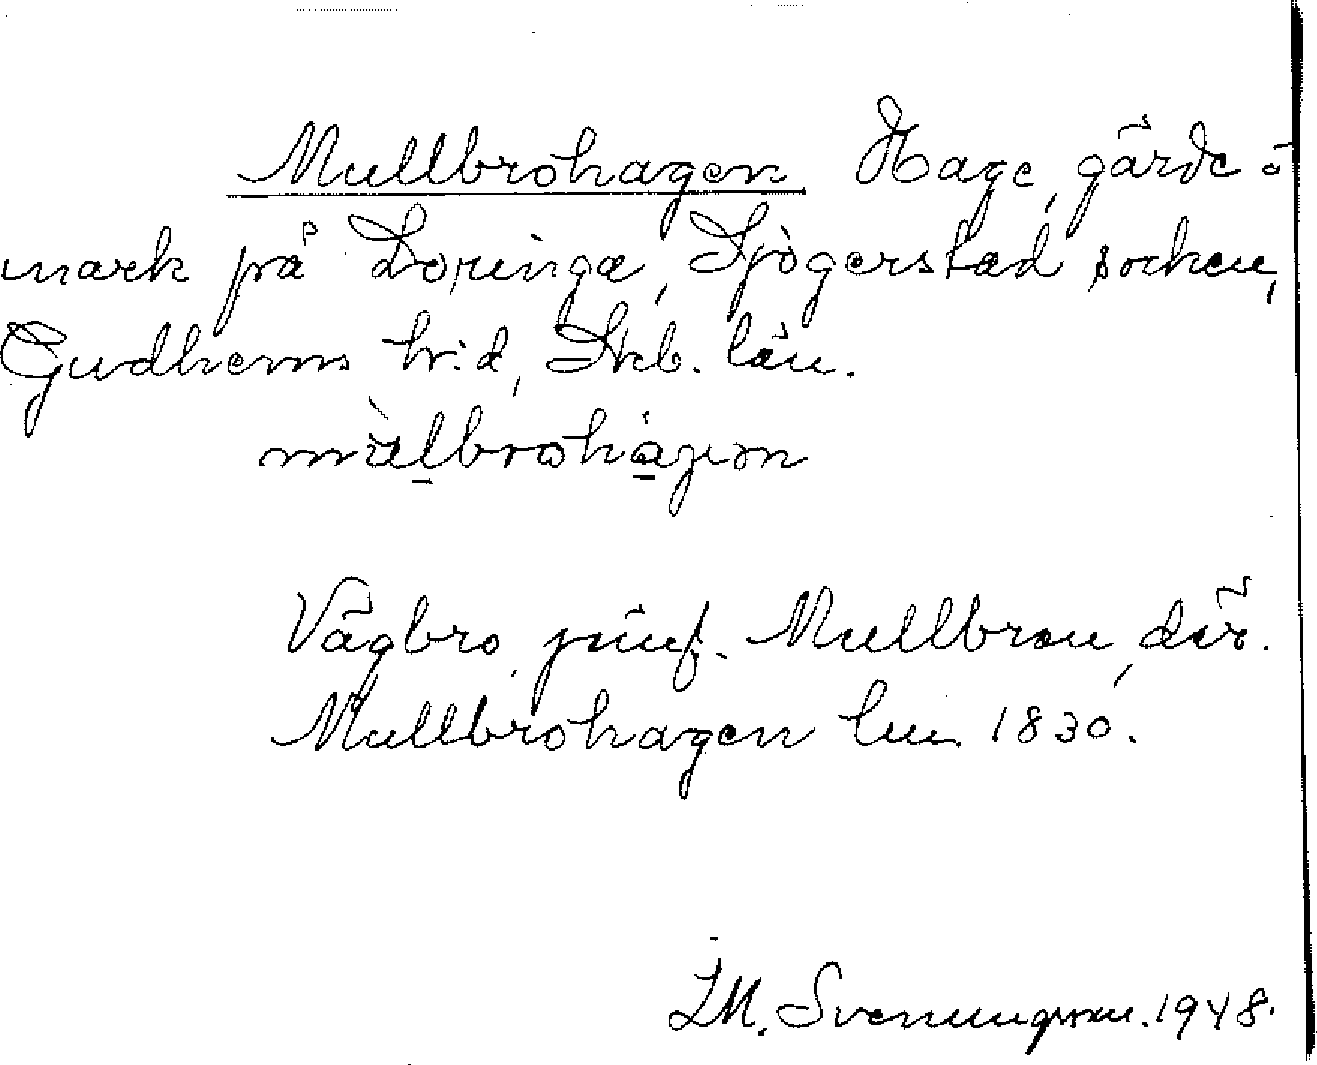 Mullbrohagen Hage, gärde o
mark på Dopinga, Sjögerstad socken,
Gudhems h:d, Skb. län.
màlbrohagen
Vägbro, jämf. Mullbron, där.
Mullbrohagen lm. 1830.
I.M. Svenungsson. 1948.